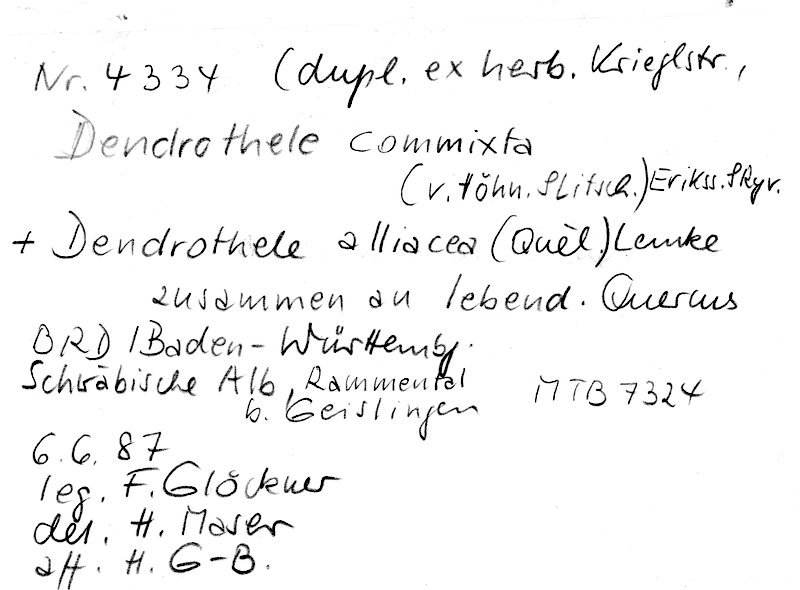 Nr. 4334 (dupl. ex herb. Krieglstr.,
Dendrothele commixta
(v. Höhn. & Litsch.) Erikss. & Ryv.
+ Dendrothele alliacea (Quèl) Lemke
zusammen an lebend. Quercus
BRD / Baden-Württembg.
Schwäbische Alb, Rammental
b. Geislingen MTB 7324
6.6.87
leg. F. Glöckner
det. H. Maser
aff. H. G-B.